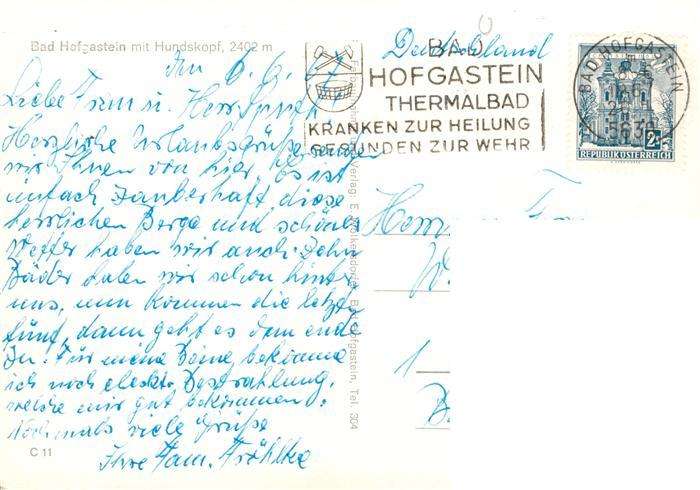 Bad Hofgastein mit Hundskopf, 2402 m
Im 6. 9. 67
Liebe Frau u. Herr
Herzliche Urlaubsgrüße senden
wir Ihnen von hier. Es ist
einfach Zauberhaft diese
herrlichen Berge und schönes
Wetter haben wir auch. Zehn
Bäder haben wir schon hinter
uns, nun kommen die letzten
fünf, dann geht es dem ende
zu. Für meine Beine bekomme
ich noch elektr. Bestrahlung,
welche mir gut bekommen.
Nochmals viele Grüße
Ihre Fam. Fröhlke
C 11
Verlag: E. Bad Hofgastein, Tel. 304
Deutschland
BAD
HOFGASTEIN
THERMALBAD
KRANKEN ZUR HEILUNG
GESUNDEN ZUR WEHR
BAD HOFGASTEIN
5630
2 S
REPUBLIK ÖSTERREICH
1